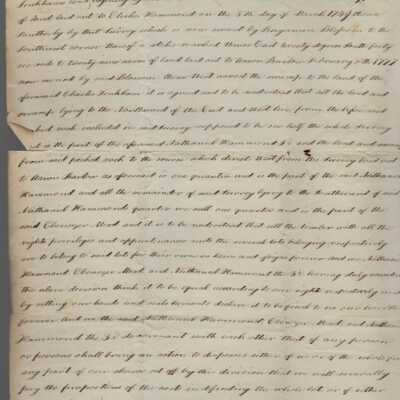 of land laid out to Elisha Hammond on the 8th day of March 1749 thence
Southerly by that survey which is now owned by Benjamin to the
Southeast corner thereof a stake marked thence East twenty degrees South forty
six rods to twenty nine acres of land laid out to Aaron Barlow February 5th 1777
now owned by said thence West across the swamp to the land of the
aforesaid Elisha it is agreed and to be understood that all the land and
swamp lying to the Northward of the East and West line from the aforesaid
which included in said survey supposed to be one half the whole survey
is the part of the aforesaid Nathaniel Hammond Jr and the land and swamp
from said pitched rock to the corner which direct West from the survey laid out
to Aaron Barlow as aforesaid is one quarter and is the part of the said Nathaniel
Hammond and all the remainder of said survey lying to the Southward of said
Nathaniel Hammonds quarter we call one quarter and is the part of the
said Ebenezer Mead and it is to be understood that all the timber with all the
rights privileges and appurtenances unto the several lots belonging respectively
are to belong to said lots for their own as heirs and assigns forever and we Nathaniel
Hammond Ebenezer Mead and Nathaniel Hammond the 3d having duly considered
the above division think it to be equal according to our rights respectively and
by setting our hands and seals hereunto declare it to be good to us our heirs &
forever And we the said Nathaniel Hammond, Ebenezer Mead and Nathan
Hammond the 3d do covenant with each other that if any person
or persons shall bring an action to dispossess either of us or of the whole or
any part of our shares set off by this division that we will severally
pay the proportions of the cost in defending the whole lot or if either